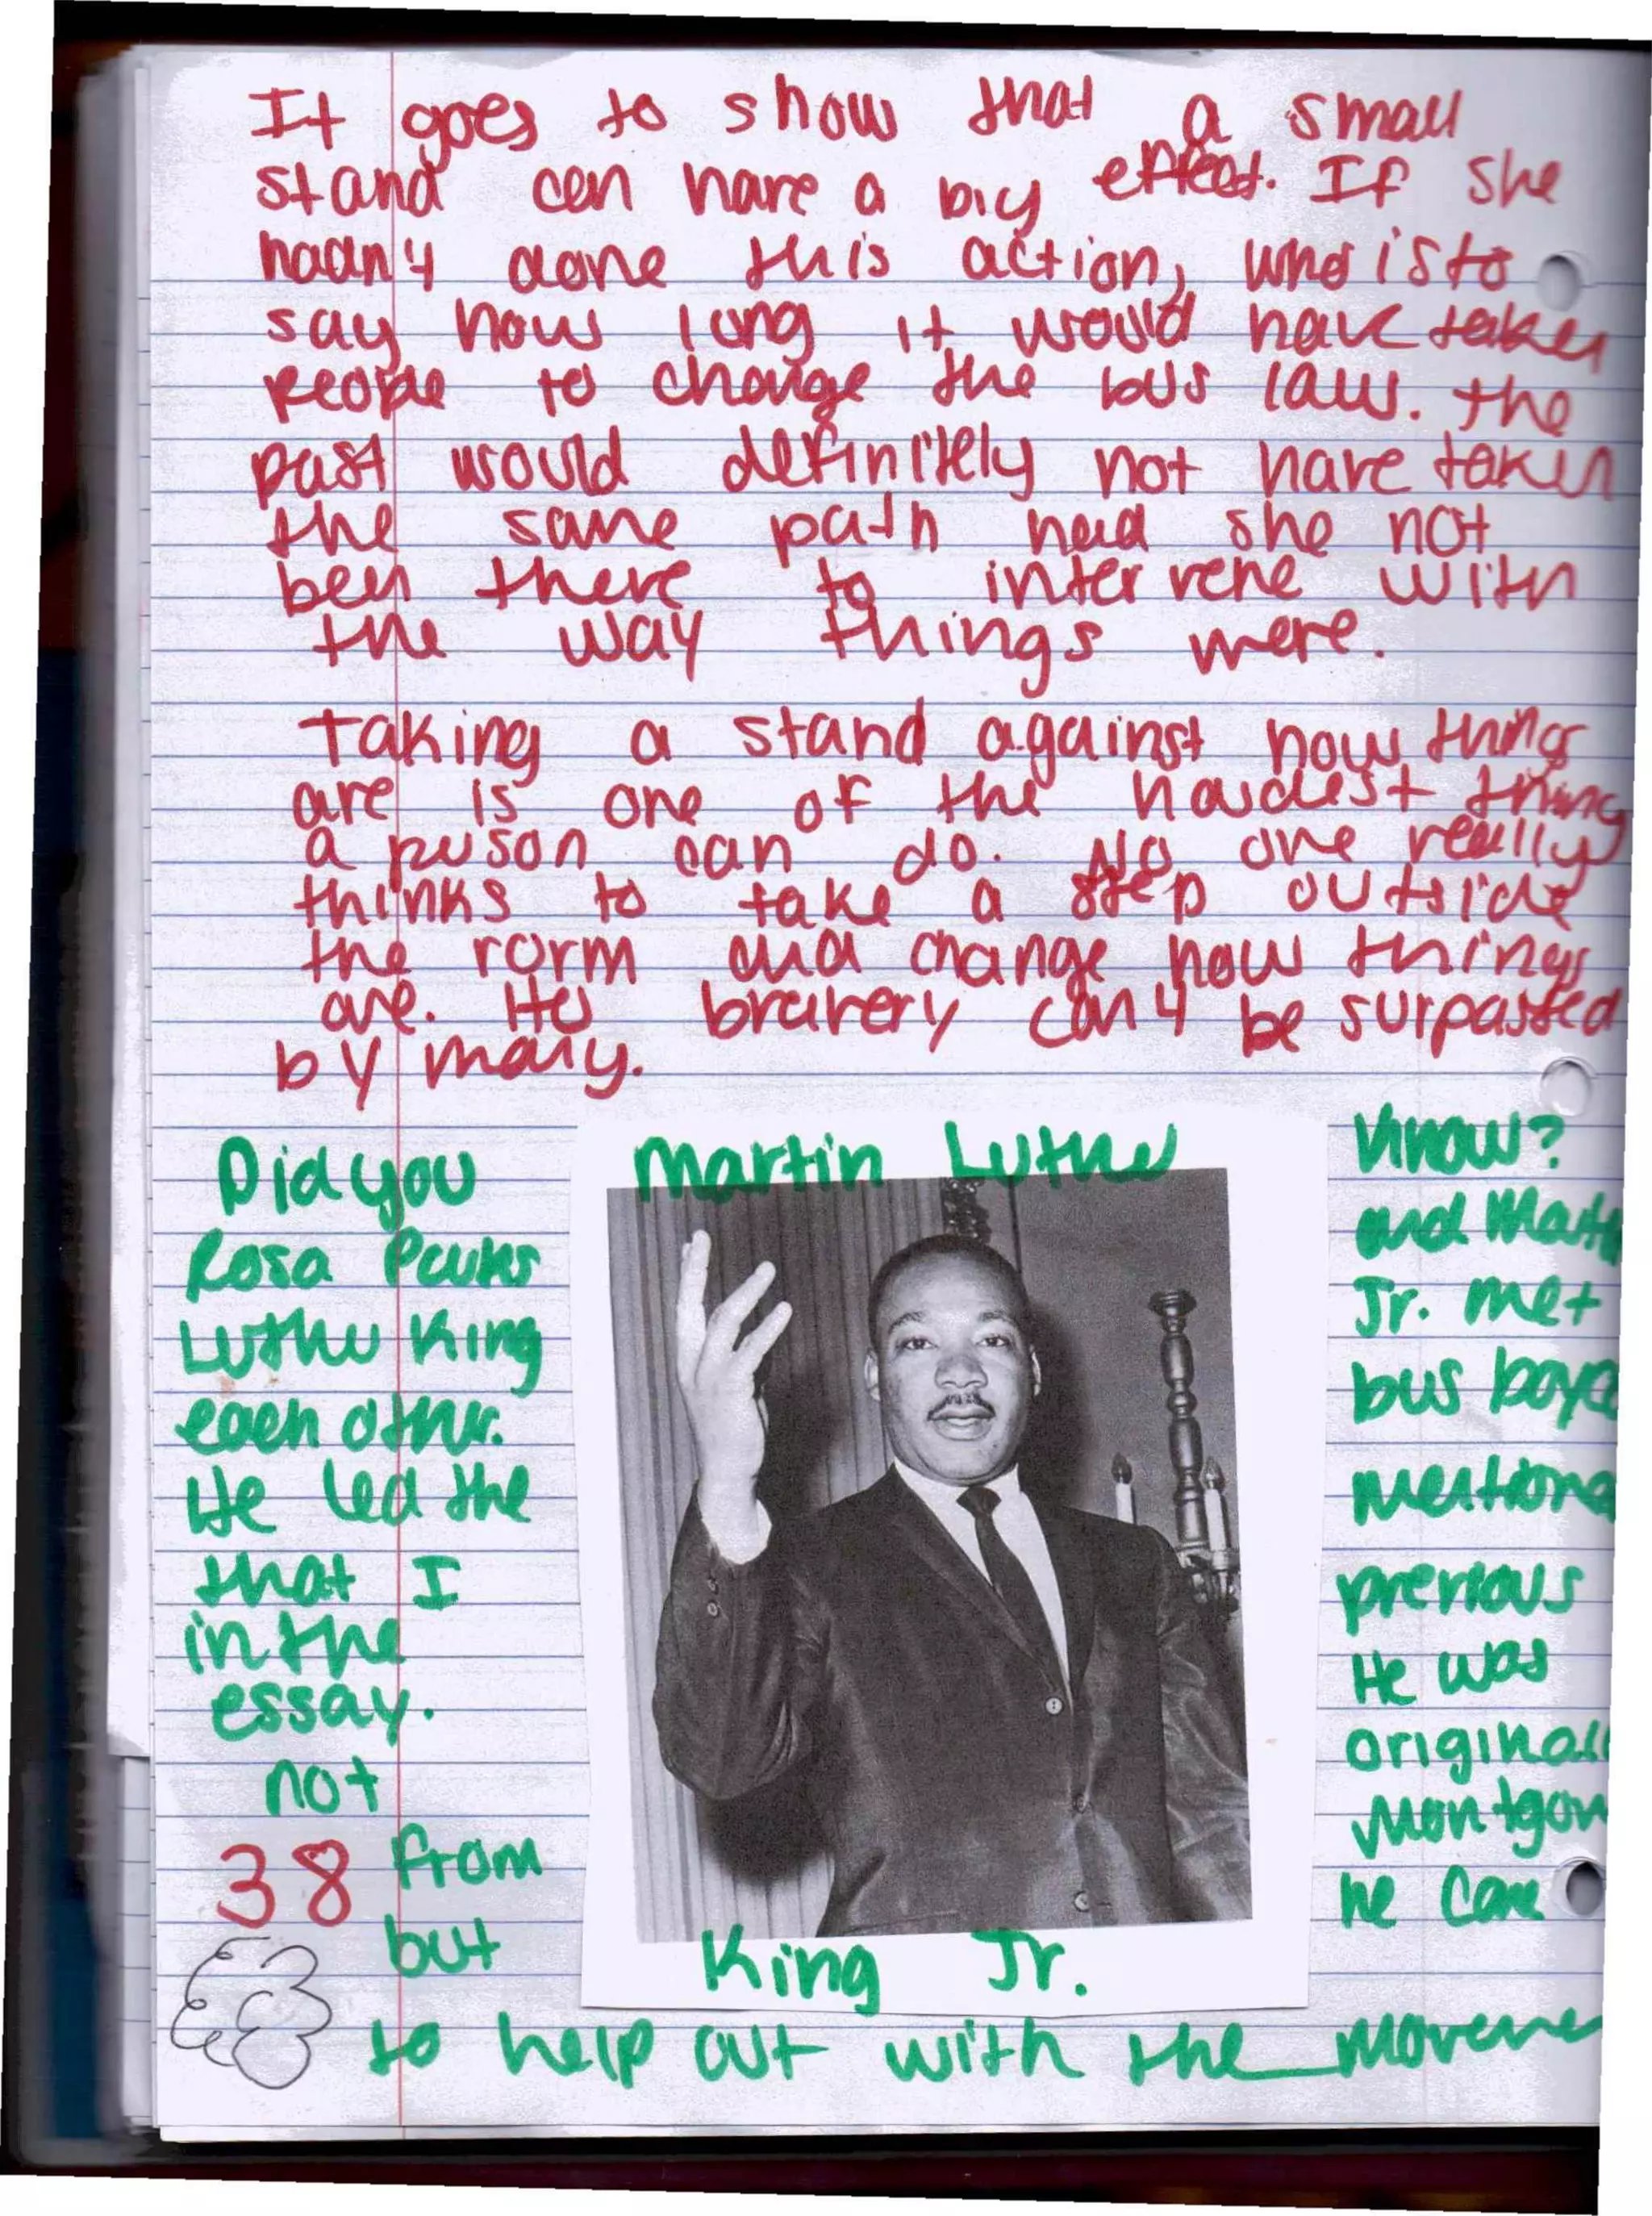 It goes to show that a small
stand can have a big effect. If she
hadn't done this action, who is to
say how long it would have taken
people to change the bus law. The
past would definitely not have taken
the same path had she not
been there to intervene with
the way things were.
Taking a stand against how things
are is one of the hardest thing
a person can do. No one really
thinks to take a step outside
the norm and change how things
are. Her bravery can't be surpassed
by many.
Did you know?
Rosa Parks and Mart
Luther King Jr. met
each other. bus boyc
He led the mentione
that I previous
in the He was
essay. originall
not Montgom
from he came
but
to help out with the moveme
Martin Luther
King Jr.
38